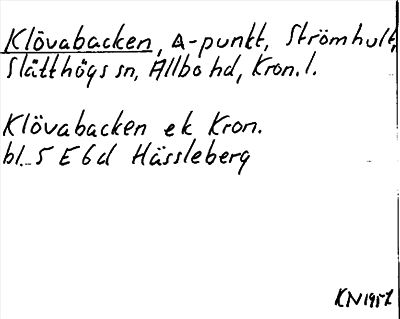 Klövabacken, Δ-punkt, Strömhult,
Slätthögs sn, Allbo hd, Kron. l.
Klövabacken ek Kron.
bl. 5 E 6d Hässleberg